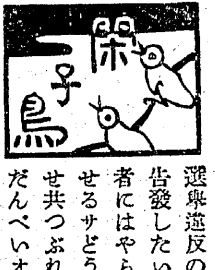 閑子鳥
選擧違反の
告發したい
者にはやら
せるサどう
せ共つぶれ
だんぺいオ